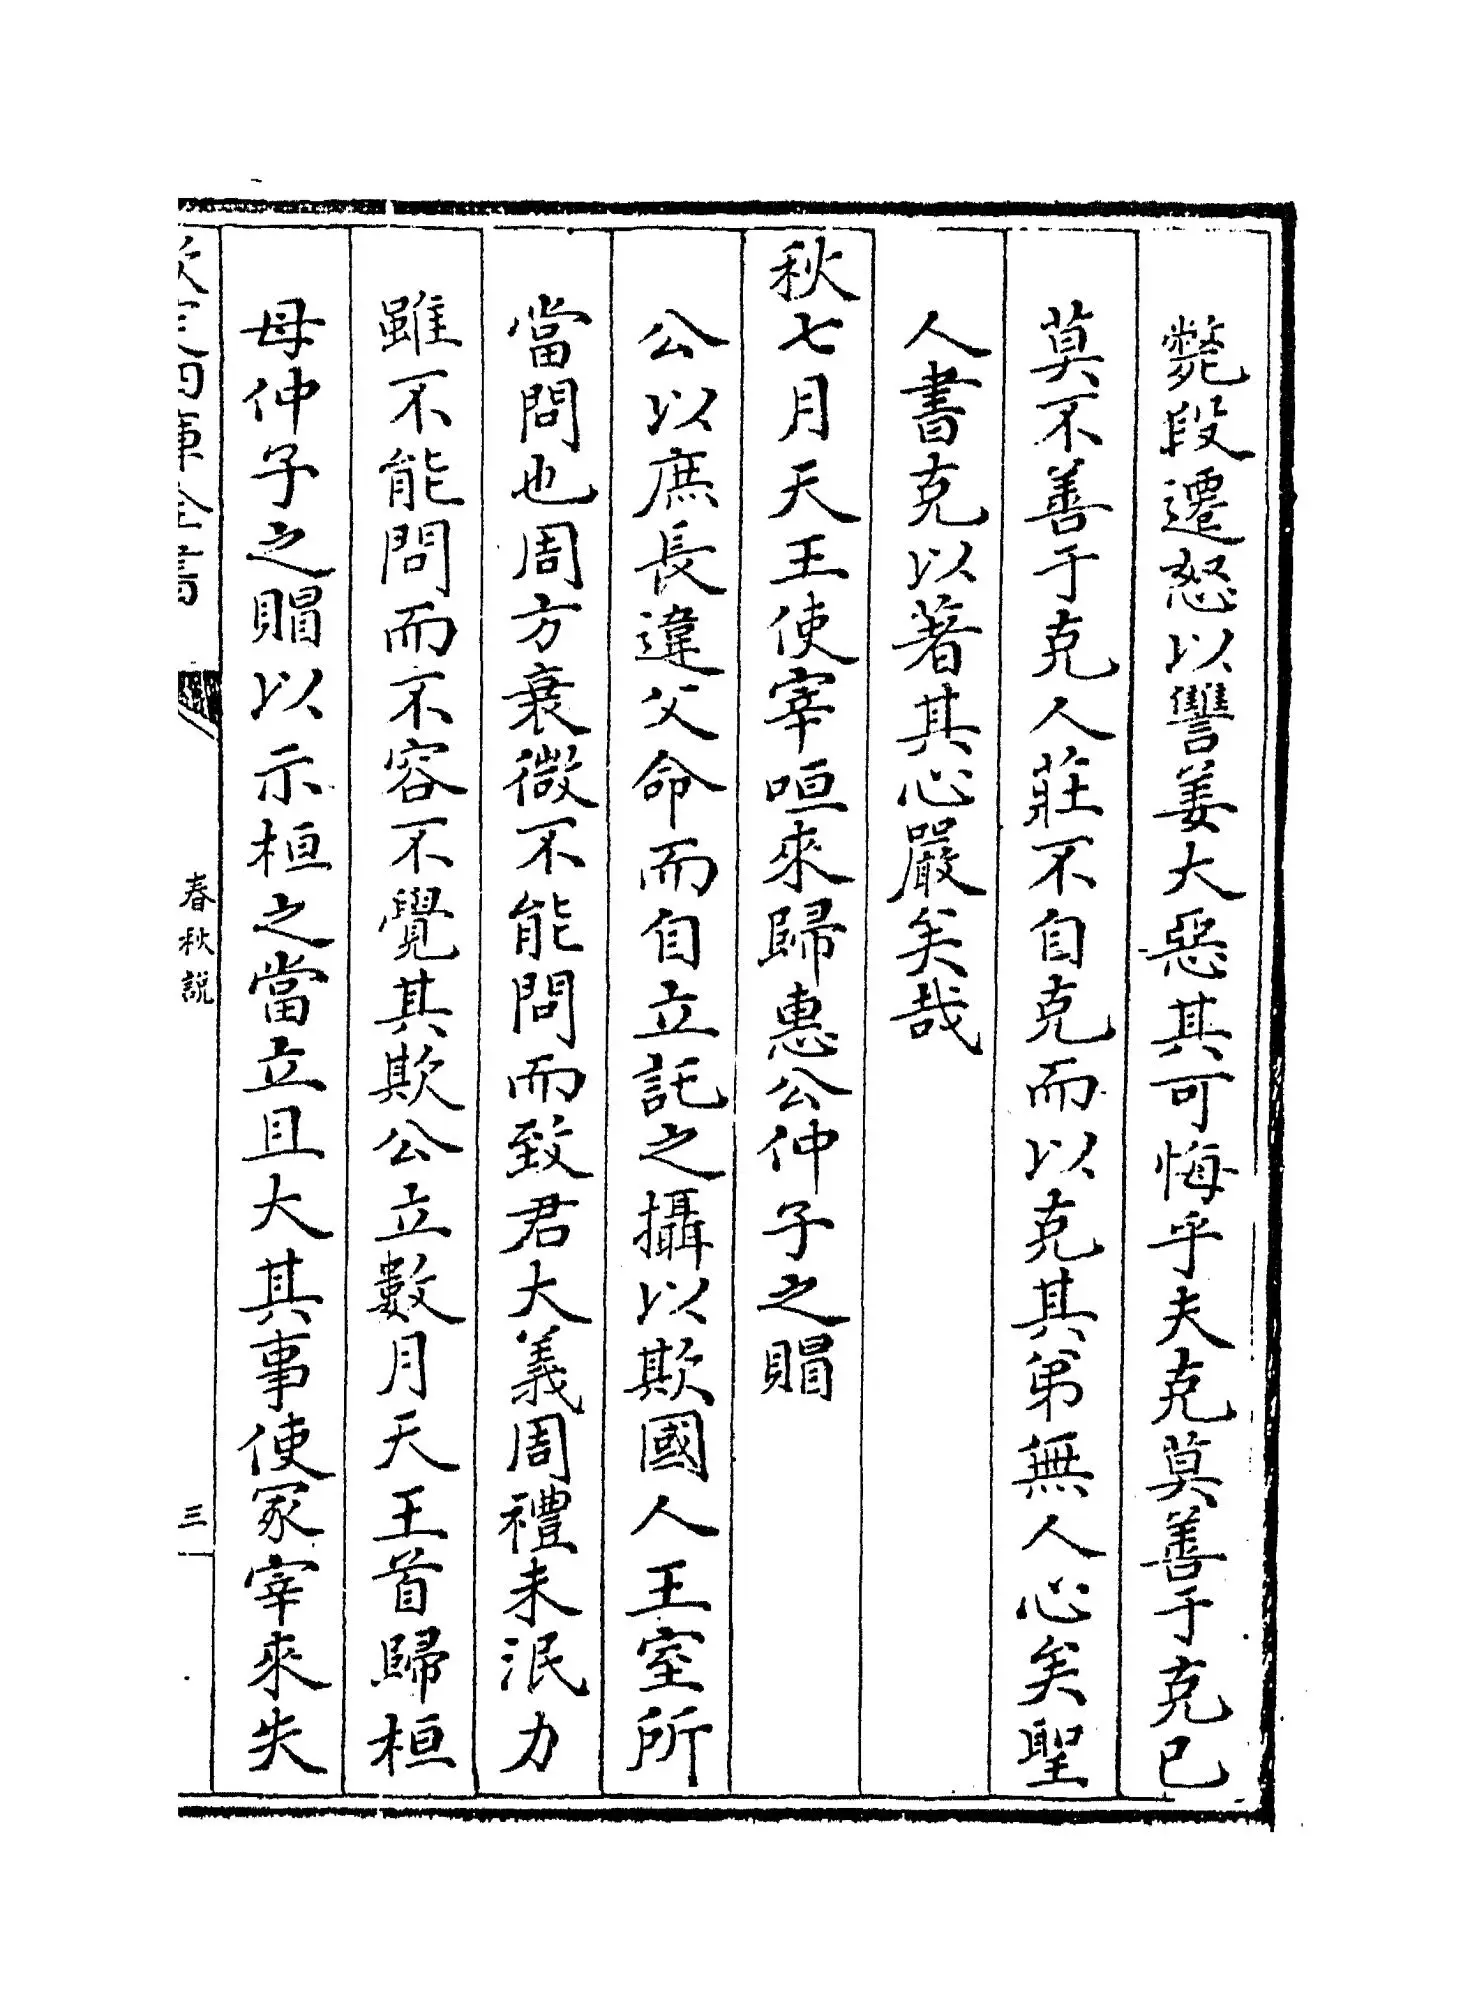 斃段遷怒以讐姜大惡其可悔乎夫克莫善于克己
莫不善于克人莊不自克而以克其弟無人心矣聖
人書克以著其心嚴矣哉
秋七月天王使宰咺來歸惠公仲子之賵
公以庶長違父命而自立託之攝以欺國人王室所
當問也周方衰微不能問而致君大義周禮未泯力
雖不能問而不容不覺其欺公立數月天王首歸桓
母仲子之賵以示桓之當立且大其事使冢宰來失
欽定四庫全書
春秋說
三